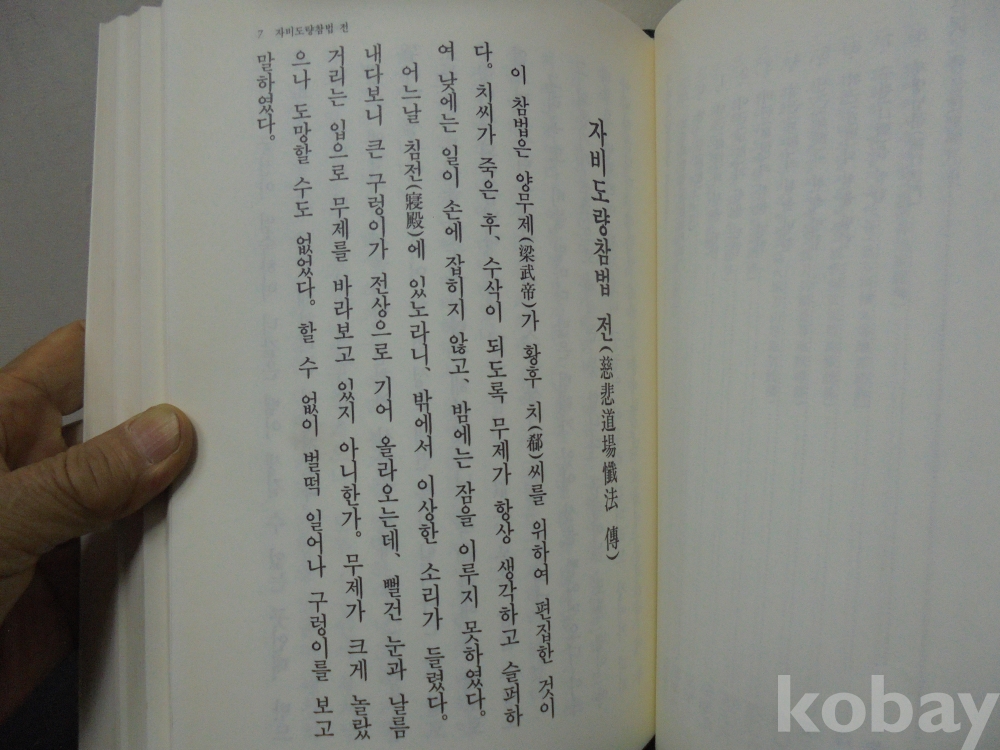 자비도량참법 전(慈悲道場懺法 傳)
이 참법은 양무제(梁武帝)가 황후 치(郗)씨를 위하여 편집한 것이
다. 치씨가 죽은 후, 수삭이 되도록 무제가 항상 생각하고 슬퍼하
여 낮에는 일이 손에 잡히지 않고, 밤에는 잠을 이루지 못하였다.
어느날 침전(寢殿)에 있노라니, 밖에서 이상한 소리가 들렸다.
내다보니 큰 구렁이가 전상으로 기어 올라오는데, 뻘건 눈과 날름
거리는 입으로 무제를 바라보고 있지 아니한가. 무제가 크게 놀랐
으나 도망할 수도 없었다. 할 수 없이 벌떡 일어나 구렁이를 보고
말하였다.
7 자비도량참법 전
kobay